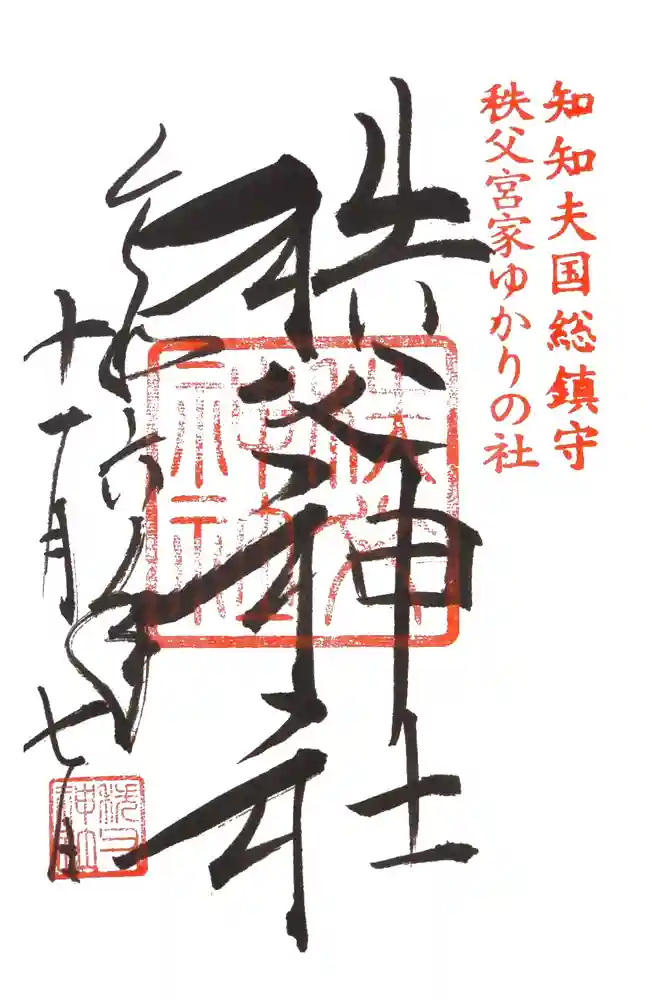 知知夫国総鎮守
秩父宮家ゆかりの社
秩父神社
秩父神社
令和六年
十一月七日